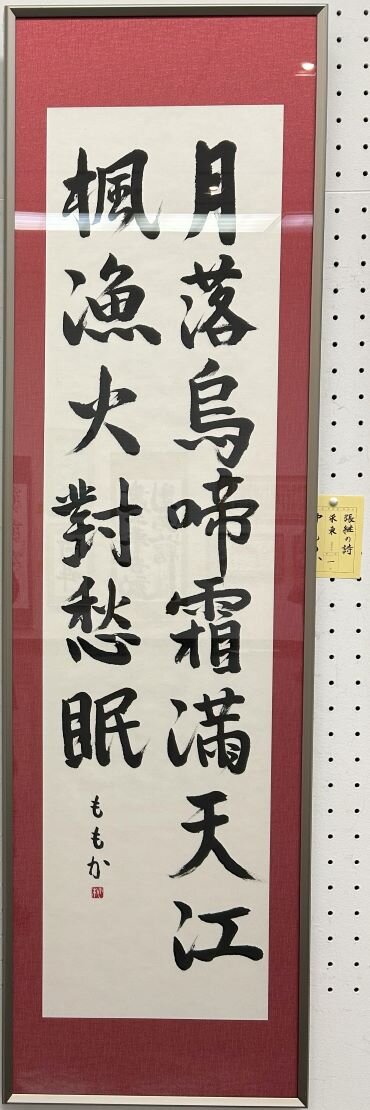 月落烏啼霜滿天江
楓漁火對愁眠
ももか
張継の詩
栄東
一